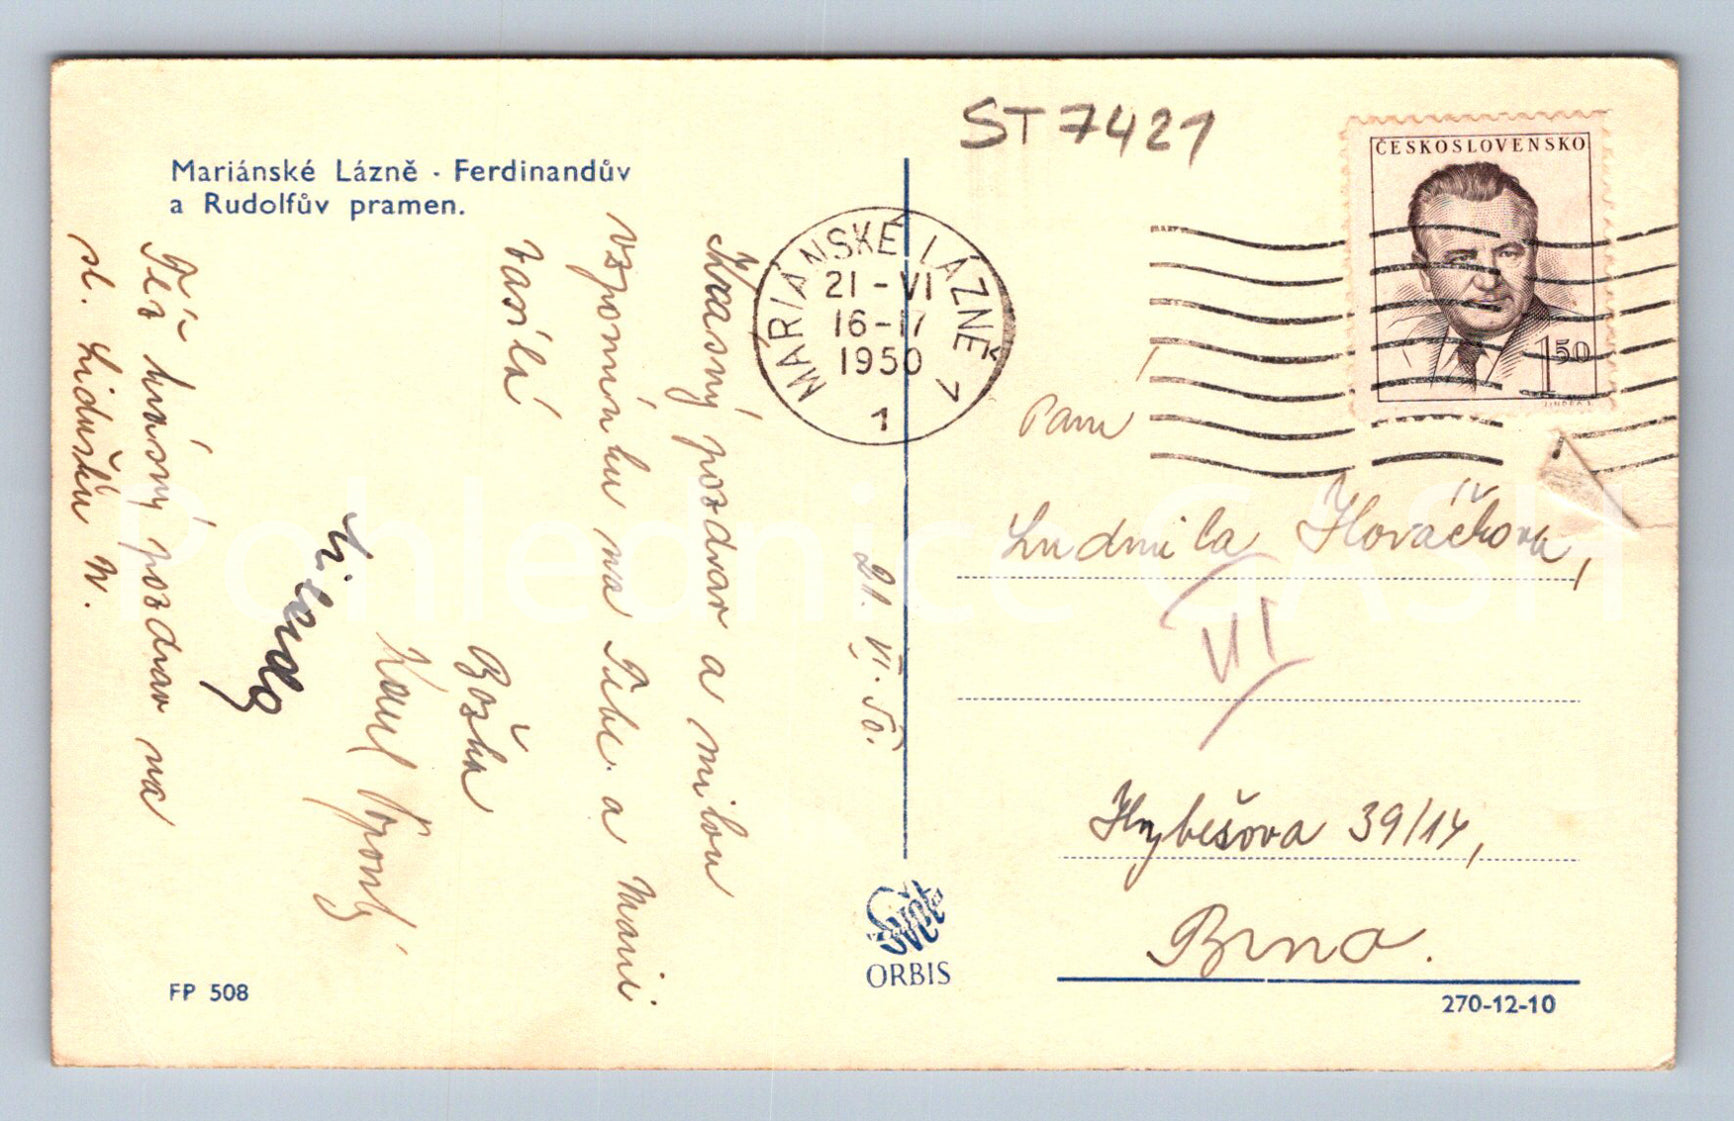 Mariánské Lázně · Ferdinandův
a Rudolfův pramen.
ST 7421
ČESKOSLOVENSKO
1 50
MARIÁNSKÉ LÁZNĚ 1
21-VI
16-17
1950
1
Krásný pozdrav a milou
vzpomínku na Tebe a Mani
zasílá
Božka
Karel
Též krásný pozdrav na
sl. Lidušku N.
21. VI. 50.
Paní
Ludmila Hlováčkova,
VI
Hybešova 39/14,
Brno.
Svět
ORBIS
FP 508
270-12-10
Pohlednice GASH